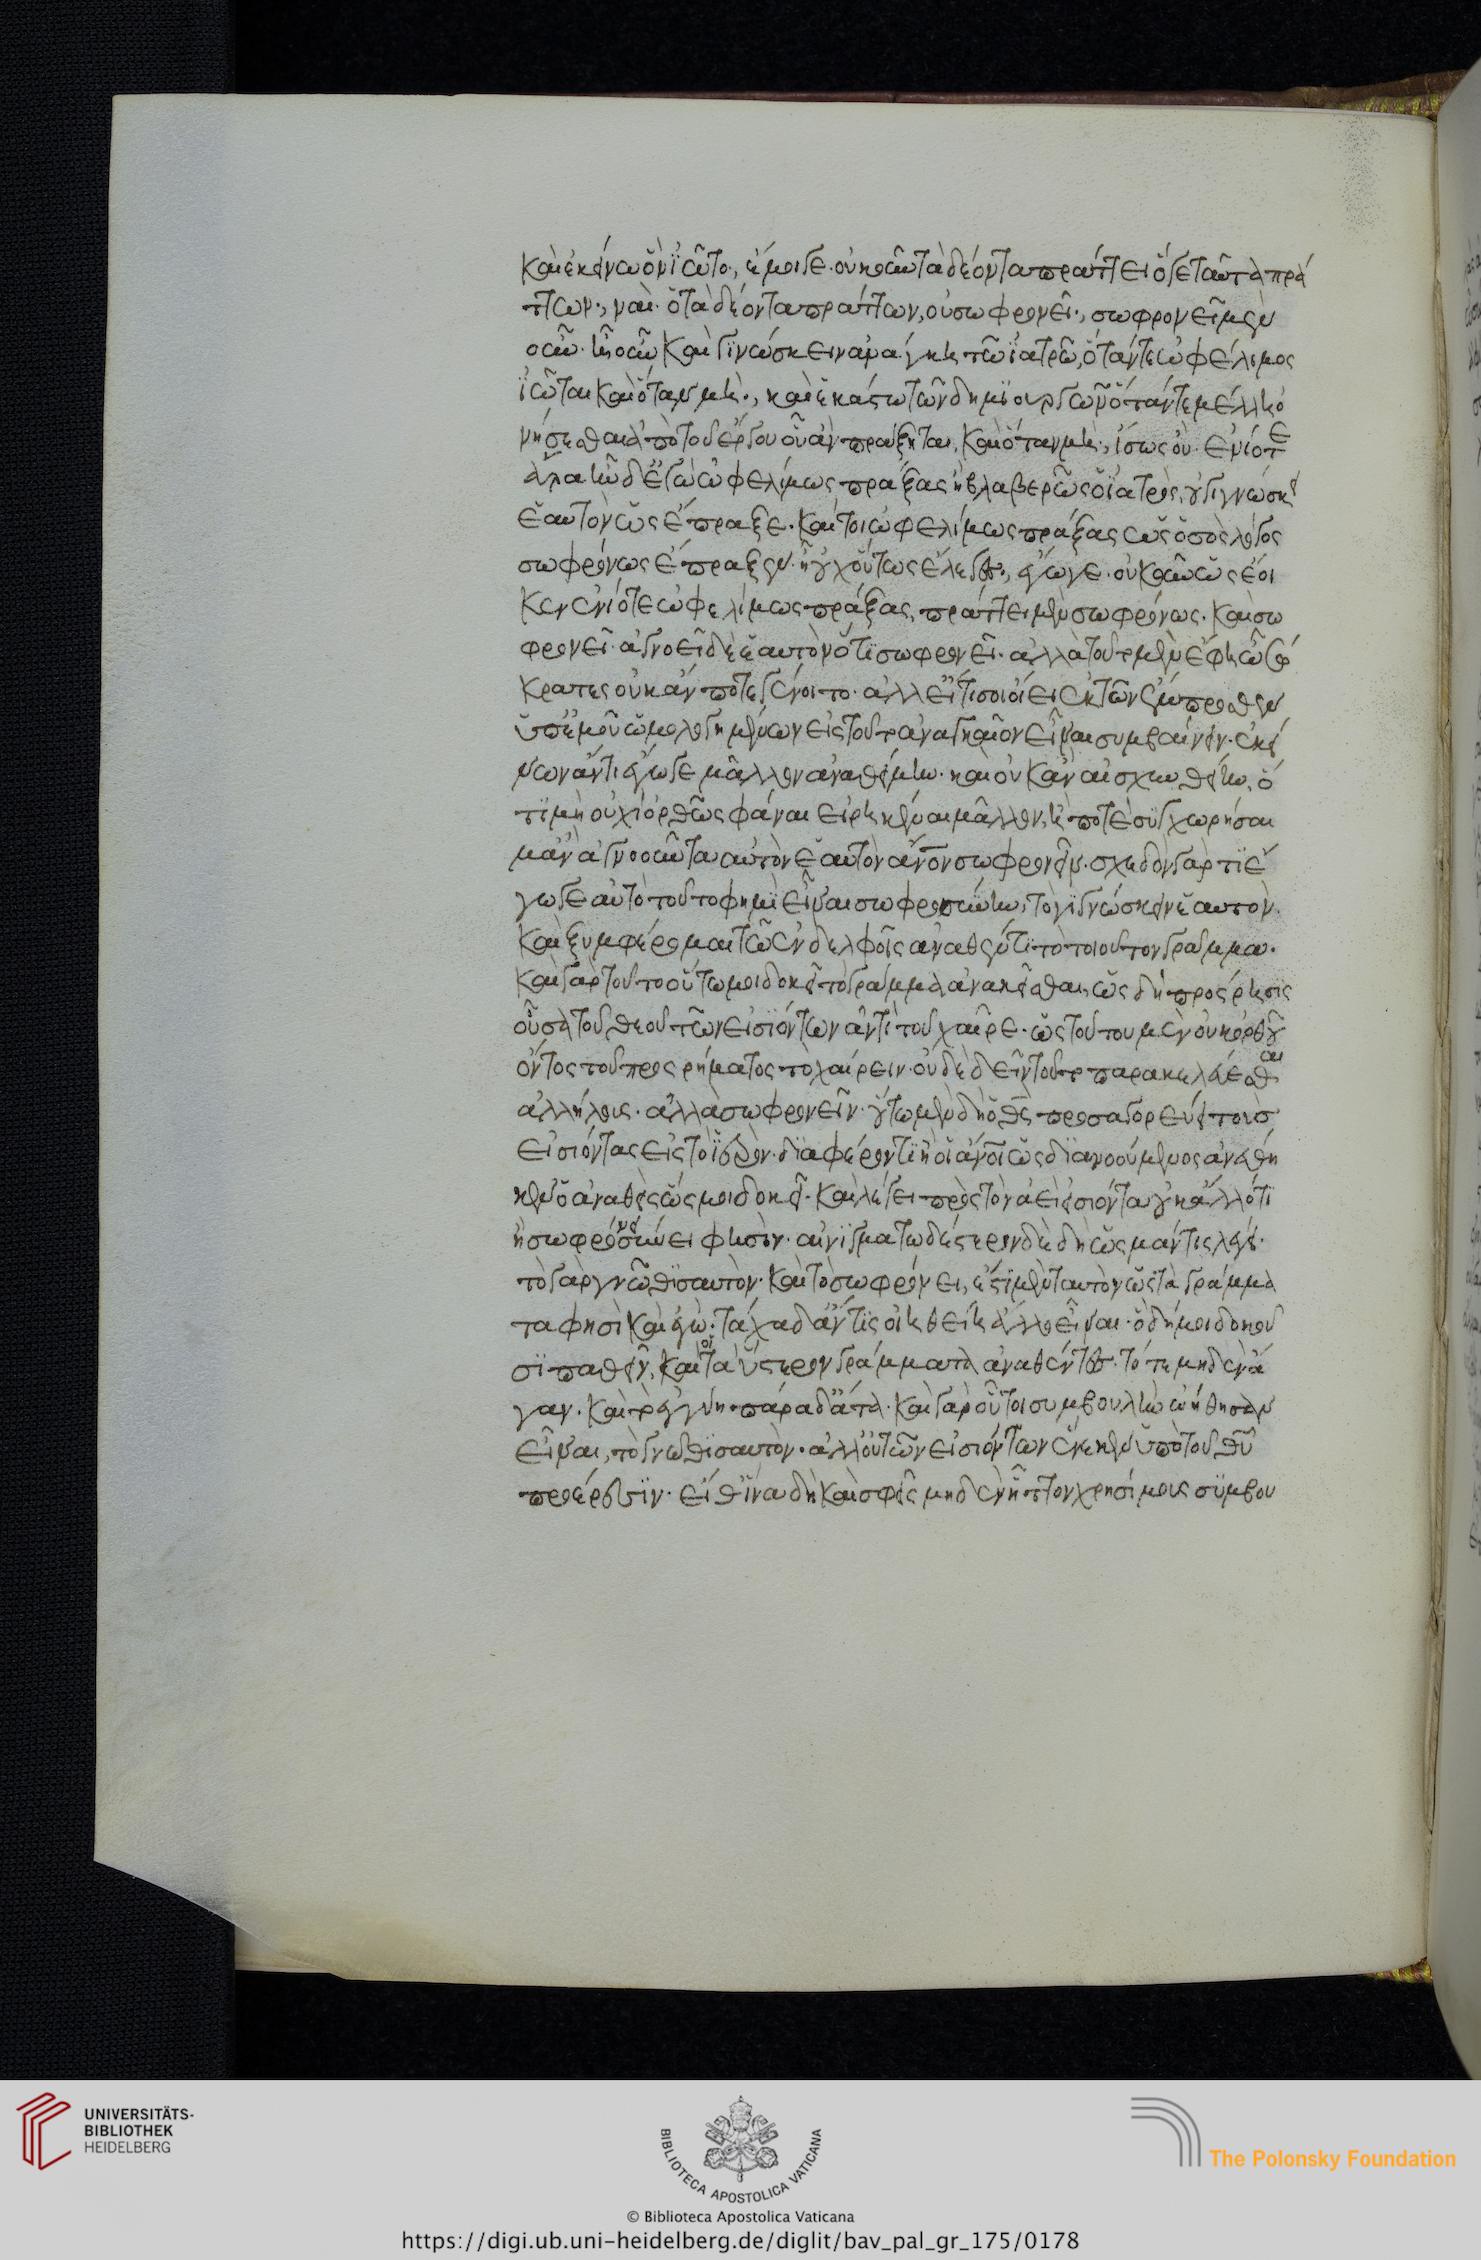 καὶ ἐκείνω ὃν ἰῶτο., ἔμοιγε. οὐκοῦν τὰ δέοντα πράττει ὅ γε ταῦτα πρά
ττων., ναί. ὁ τὰ δέοντα πράττων, οὐ σωφρονεῖ., σωφρονεῖ μὲν
οὖν. ἦ οὖν καὶ γινώσκειν ἀνάγκη τῶ ἰατρῶ, ὅταν τε ὠφελίμως
ἰῶται καὶ ὅταν μή., καὶ ἑκάστω τῶν δημιουργῶν ὅταν τε μέλλη ὀ
νήσεσθαι ἀπὸ τοῦ ἔργου οὗ ἂν πράξηται, καὶ ὅταν μή., ἴσως οὔ. ἐνίοτε
ἄρα ἦν δ' ἐγὼ ὠφελίμως πράξας ἢ βλαβερῶς ὁ ἰατρὸς, οὐ γιγνώσκει
ἑαυτὸν ὡς ἔπραξε. καίτοι ὠφελίμως πράξας ὡς ὁ σὸς λόγος
σωφρόνως ἔπραξεν. ἢ οὐχ οὕτως ἔλεγες., ἔγωγε. οὐκοῦν ὡς ἔοι
κεν ἐνίοτε ὠφελίμως πράξας, πράττει μὲν σωφρόνως. καὶ σω
φρονεῖ. ἀγνοεῖ δὲ ἑαυτὸν ὅτι σωφρονεῖ. ἀλλὰ τοῦτο μὲν ἔφη ὦ σώ
κρατες οὐκ ἄν ποτε γένοιτο. ἀλλ' εἴ τι σοι οἴει ἐκ τῶν ἔμπροσθεν
ὑπ' ἐμοῦ ὡμολογημένων εἰς τοῦτο ἀναγκαῖον εἶναι συμβαίνειν. ἐκεί
νων ἄν τι ἔγωγε μᾶλλον ἀναθείμην. καὶ οὐκ ἂν αἰσχυνθείην, ὅ
τι μὴ οὐχὶ ὀρθῶς φάναι εἰρηκέναι μᾶλλον, ἤ ποτε συγχωρήσαι
μ' ἂν ἀγνοοῦντα αὐτὸν ἑαυτὸν ἄνον σωφρονεῖν. σχεδὸν γάρ τι ἔ
γωγε αὐτὸ τοῦτο φημὶ εἶναι σωφροσύνην, τὸ γιγνώσκειν ἑαυτόν.
καὶ ξυμφέρομαι τῶ ἐν δελφοῖς ἀναθέντι τὸ τοιοῦτον γράμμα.
καὶ γὰρ τοῦτο οὕτω μοι δοκεῖ τὸ γράμμα ἀνακεῖσθαι, ὡς δὴ πρόςρησις
οὖσα τοῦ θεοῦ τῶν εἰσιόντων ἀντὶ τοῦ χαῖρε. ὡς τούτου μὲν οὐκ ὀρθοῦ
ὄντος τοῦ προςρήματος τὸ χαίρειν. οὐδὲ δεῖν τοῦτο παρακελεύεσθαι
ἀλλήλοις. ἀλλὰ σωφρονεῖν. οὕτω μὲν δὴ ὁ θς προσαγορεύει τοὺς
εἰσιόντας εἰς τὸ ἱερὸν. διαφέρον τι ἢ οἱ ἄνοι ὡς διανοούμενος ἀνέθη
κεν ὁ ἀναθεὶς ὥς μοι δοκεῖ. καὶ λέγει πρὸς τὸν ἀεὶ εἰσιόντα οὐκ ἄλλό τι
ἢ σωφρόνει φησίν. αἰνιγματωδέστερον δὲ δὴ ὡς μάντις λέγει.
τὸ γὰρ γνῶθι σαυτὸν. καὶ τὸ σωφρόνει, ἔστι μὲν ταυτὸν ὡς τὰ γράμμα
τα φησὶ καὶ ἐγώ. τάχα δ' ἄν τις οἰηθείη ἄλλο εἶναι. ὃ δή μοι δοκοῦ
σι παθεῖν, καὶ οἱ τὰ ὕστερον γράμματα ἀναθέντες. τό τε μηδὲν ἄ
γαν. καὶ τὸ ἐγγύη πάρα δ' ἄτα. καὶ γὰρ οὗτοι συμβουλὴν ὠήθησαν
εἶναι, τὸ γνῶθι σαυτὸν. ἀλλ' οὐ τῶν εἰσιόντων ἕνεκεν ὑπὸ τοῦ θυ
πρόσρησιν. εἶθ' ἵνα δὴ καὶ σφεῖς μηδὲν ἧττον χρησίμους συμβου
UNIVERSITÄTS-
BIBLIOTHEK
HEIDELBERG
BIBLIOTECA APOSTOLICA VATICANA
The Polonsky Foundation
© Biblioteca Apostolica Vaticana
https://digi.ub.uni-heidelberg.de/diglit/bav_pal_gr_175/0178